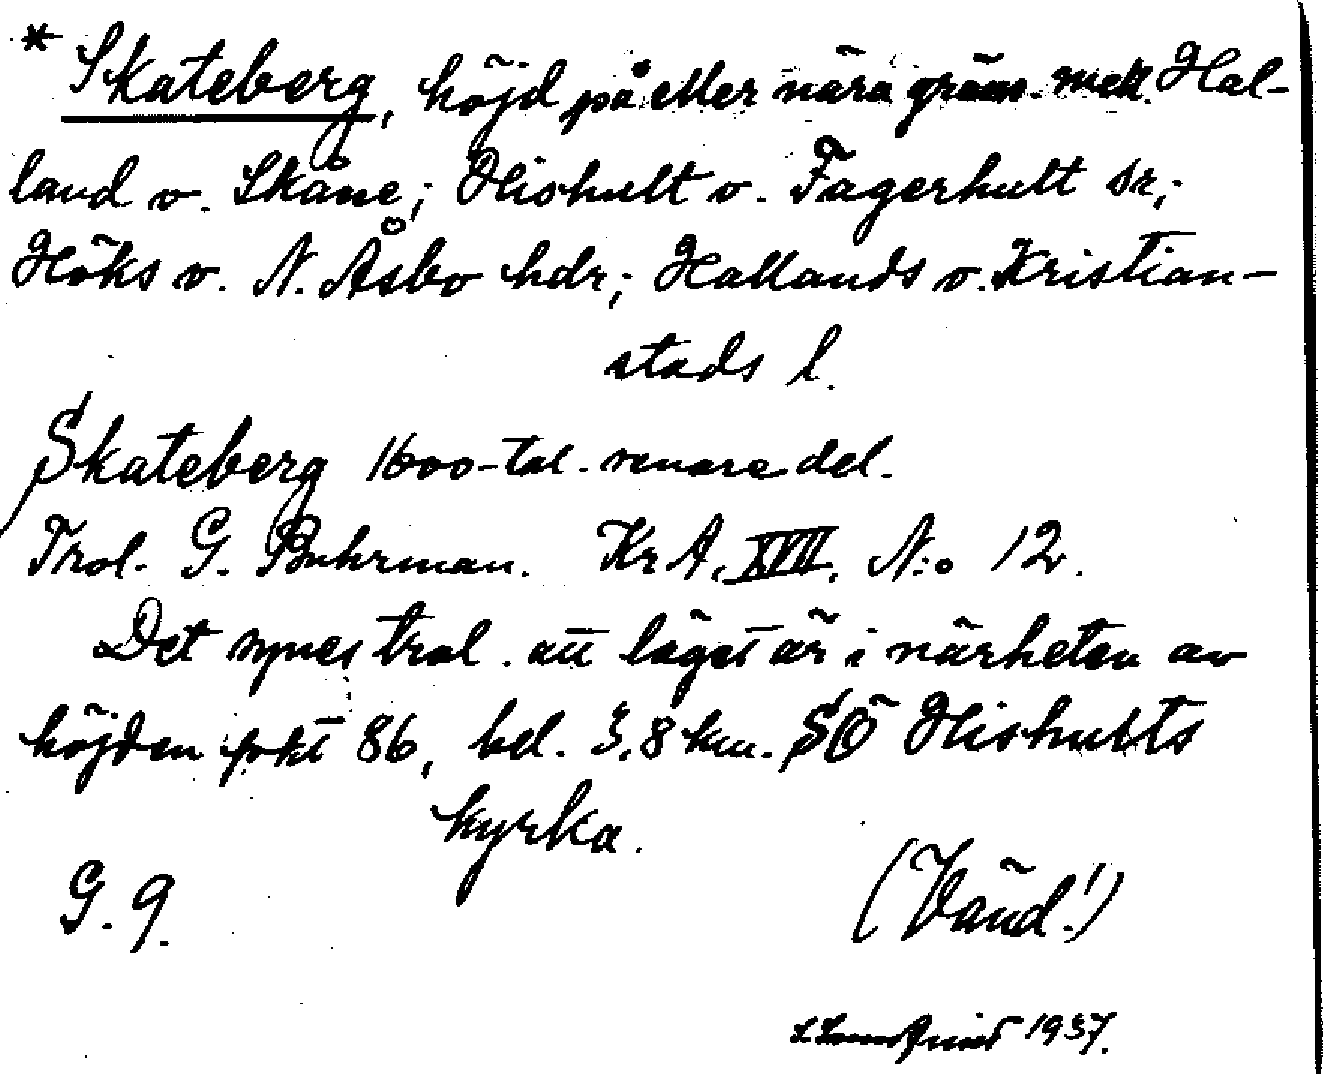 * Skateberg, höjd på eller nära gräns. mell. Hal-
land o. Skåne; Hishult o. Fagerhult sr;
Höks o. N. Åsbo hdr; Hallands o. Kristian-
stads l.
Skateberg 1600-tal. senare del.
Trol. G. Buhrman. Kr A. XVII. N:o 12.
Det synes trol. att läget är i närheten av
höjden pkt 86, bel. 3,8 km. SÖ Hishults
kyrka.
G. 9.
(Vänd!)
1937.